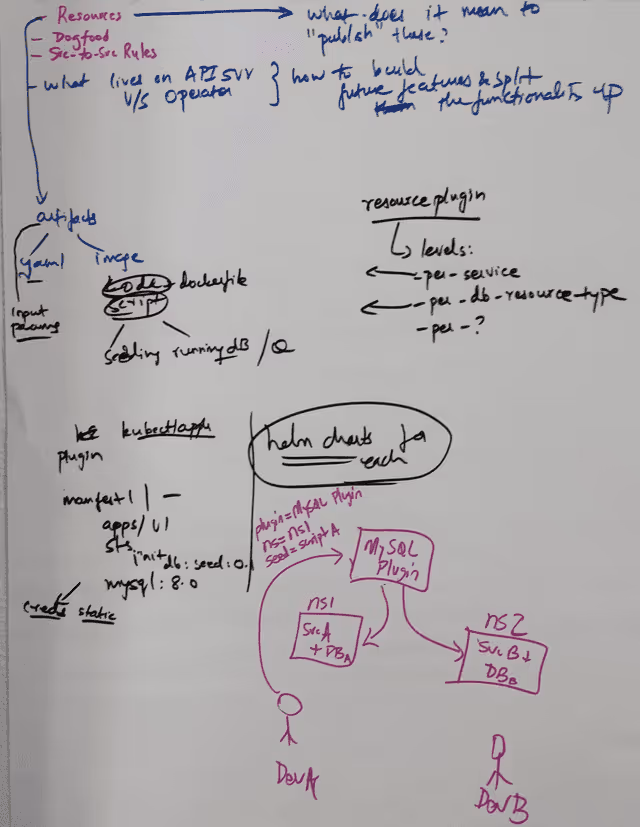 - Resources
what does it mean to
"publish" these?
- Dogfood
- Src-to-Src Rules
- what lives on API SVR
V/S Operator
how to build
future features & split
the functionality up
artifacts
yaml
image
input
params
code - dockerfile
script
seeding
running DB / Q
resource plugin
levels:
- per - service
- per - db - resource - type
- per - ?
kubectl apply
plugin
manifest 1 | —
apps/v1
sts
init
db: seed: 0.1
mysql: 8.0
creds static
helm charts for
each
plugin = MySQL Plugin
ns = ns1
seed = script A
MySQL
Plugin
ns1
Svc A
+ DBA
ns2
Svc B +
DBB
Dev A
Dev B